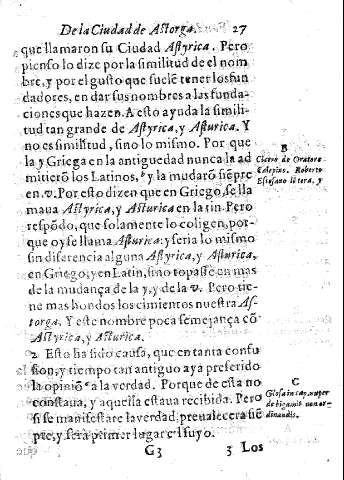 De la Ciudad de Astorga. 27
que llamaron su Ciudad Astyrica. Pero
pienso lo dize por la similitud de el nom
bre, y por el gusto que suelẽ tener los fun
dadores, en dar sus nombres a las funda-
ciones que hazen. A esto ayuda la simili-
tud tan grande de Astyrica, y Asturica. Y
no es similitud, sino lo mismo. Por que
la y Griega en la antiguedad nunca la ad
mitierõ los Latinos, b y la mudarõ siẽpre
en. v. Por esto dizen que en Griego, se lla
maua Astyrica, y Asturica en latin. Pero
respõdo, que solamente lo coligen, por-
que oy se llama Asturica: y seria lo mismo
sin diferencia alguna Astyrica, y Asturica,
en Griego, y en Latin, sino topasse en mas
de la mudança de la y, y de la v. Pero tie-
ne mas hondos los cimientos nuestra As-
torga. Y este nombre poca semejança cõ
Astyrica, y Asturica.
2. Esto ha sido causa, que en tanta confu
sion, y tiempo tan antiguo aya preferido
la opiniõ c a la verdad. Porque de esta no
constaua, y aquella estaua recibida. Pero
si se manifestare la verdad, preualecera siẽ
pre, y sera primer lugar el suyo.
G 3 3 Los
B
Cicero de Oratore
Calepins. Roberto
Estefano litera, y
C
Glosa in cap. nuper
de bigamis non or-
dinandis.